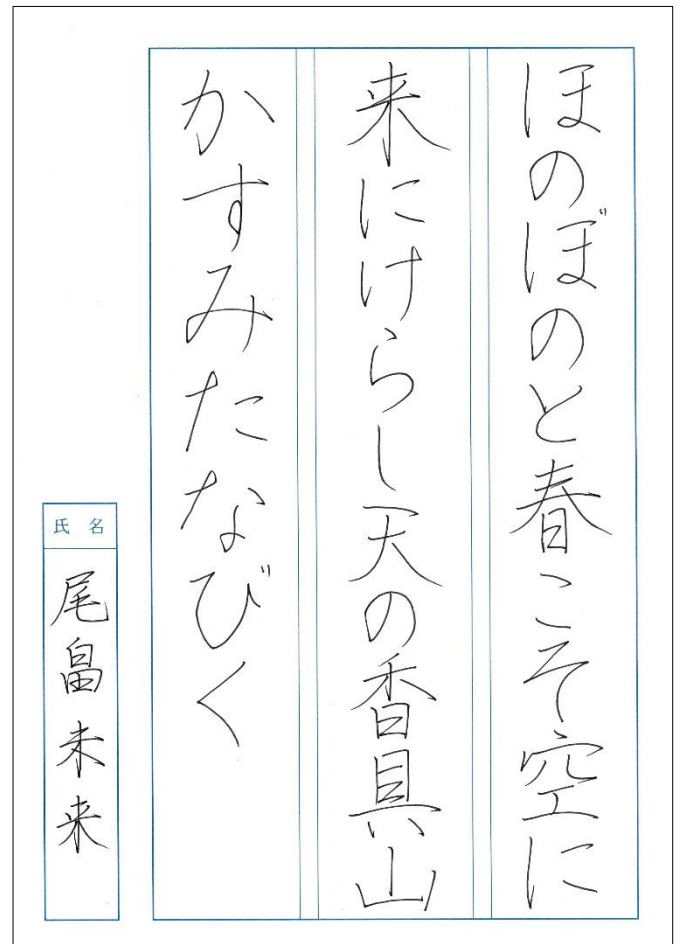 ほのぼのと春こそ空に
来にけらし天の香具山
かすみたなびく
氏名
尾畠未来